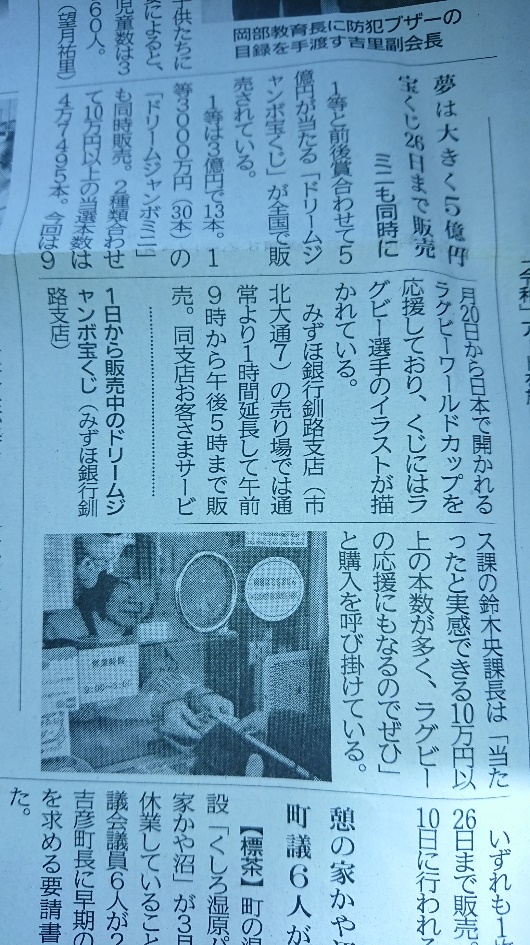 岡部教育長に防犯ブザーの
目録を手渡す吉里副会長
子供たちに
によると、
児童数は3
60人。
(望月祐里)
夢は大きく5億円
宝くじ26日まで販売
ミニも同時に
1等と前後賞合わせて5
億円が当たる「ドリームジ
ャンボ宝くじ」が全国で販
売されている。
1等は3億円で13本。1
等3000万円(30本)の
「ドリームジャンボミニ」
も同時販売。2種類合わせ
て10万円以上の当選本数は
4万7495本。今回は9
月20日から日本で開かれる
ラグビーワールドカップを
応援しており、くじにはラ
グビー選手のイラストが描
かれている。
みずほ銀行釧路支店(市
北大通7)の売り場では通
常より1時間延長して午前
9時から午後5時まで販
売。同支店お客さまサービ
ス課の鈴木央課長は「当た
ったと実感できる10万円以
上の本数が多く、ラグビー
の応援にもなるのでぜひ」
と購入を呼び掛けている。
1日から販売中のドリームジ
ャンボ宝くじ(みずほ銀行釧
路支店)
営業時間
いずれも1
26日まで販売。
10日に行われ
憩の家かや
町議6人が
【標茶】町の
設「くしろ湿原パ
家かや沼」が3月
休業していること
議会議員6人が2
吉彦町長に早期の
を求める要請書
た。